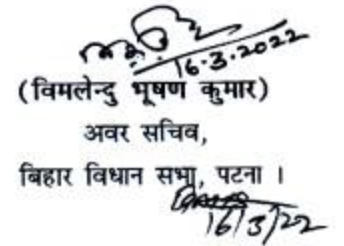 16.3.2022
(विमलेन्दु भूषण कुमार)
अवर सचिव,
बिहार विधान सभा, पटना ।
16/3/22